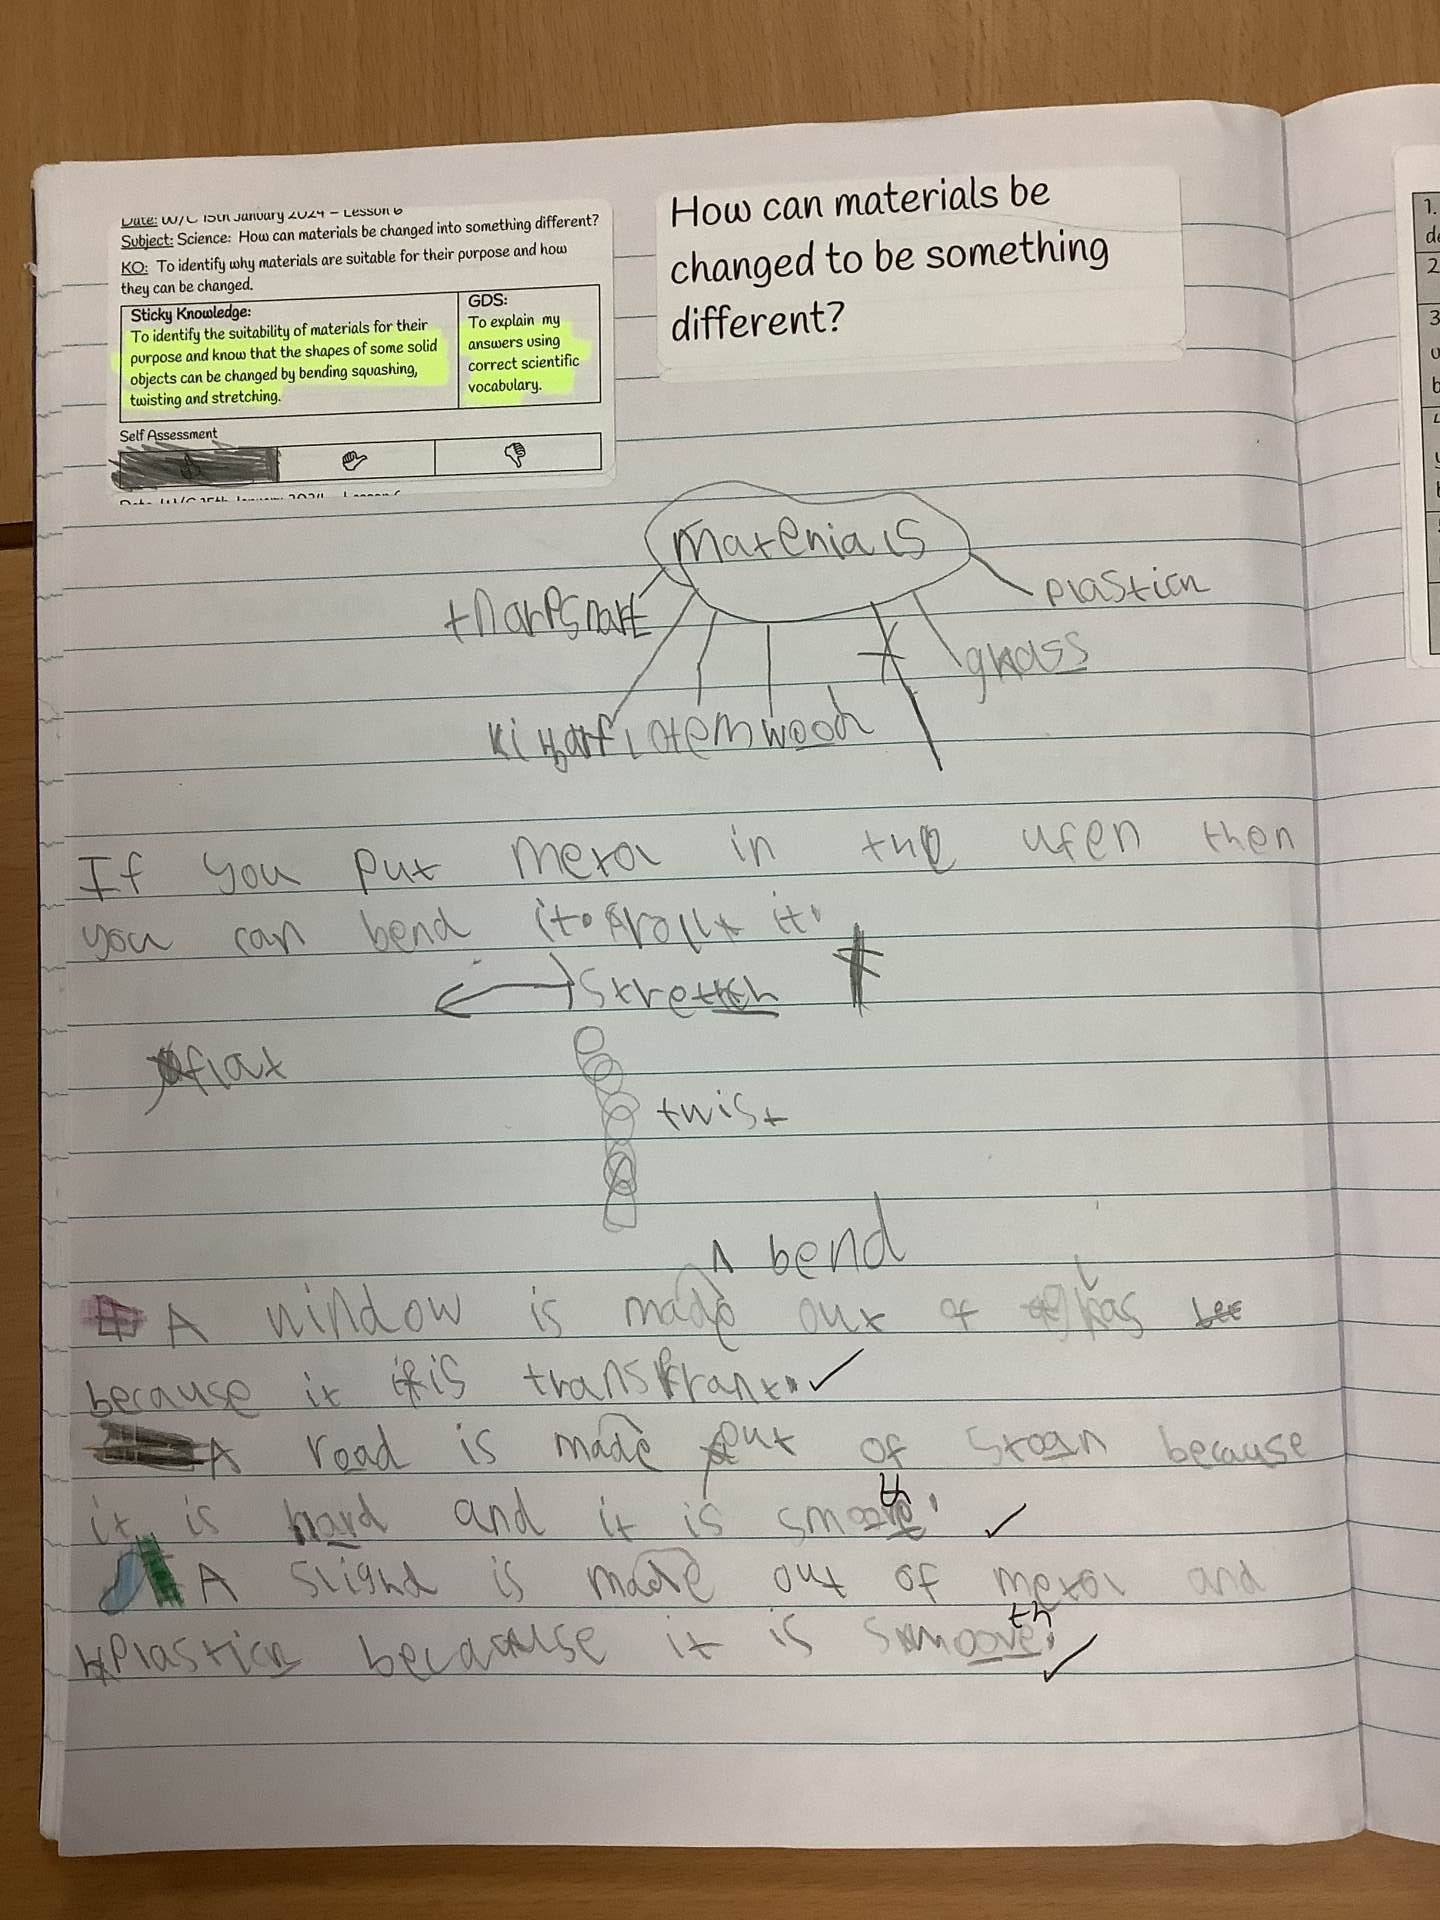 Date: W/C 15th January 2024 – Lesson 6
Subject: Science: How can materials be changed into something different?
KO: To identify why materials are suitable for their purpose and how
they can be changed.
Sticky Knowledge:
To identify the suitability of materials for their
purpose and know that the shapes of some solid
objects can be changed by bending squashing,
twisting and stretching.
GDS:
To explain my
answers using
correct scientific
vocabulary.
Self Assessment
How can materials be
changed to be something
different?
Materials
plasticn
glass
wood
If you put metal in the ufen then
you can bend it. rollt it.
stretch
flat
twist
bend
A window is made out of glas
because it is transprant.
A road is made out of stoan because
it is hard and it is smooth.
A slighd is made out of metal and
Plasticn because it is smooth.